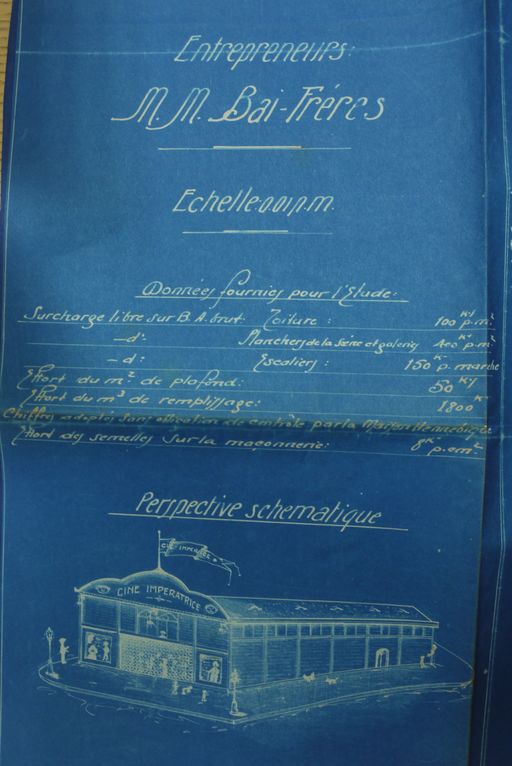 Entrepreneurs:
M.M. Bai-Fréres
Echelle 0.01 p.m.
Données fournies pour l'Etude:
Surcharge libre sur B.A. brut: Toiture: 100 Kg p.m²
-d°- Planchers de la scène et galeries 400 K° p.m²
-d°: Escaliers: 150 K° p. marche
Effort du m² de plafond: 50 Kg
Effort du m³ de remplissage: 1800 K°
Chiffres adoptés sans obligation de contrôle par la Maison Hennebique
Effort des semelles sur la maçonnerie: 8 K° p. cm²
Perspective schematique
CINÉ IMPER
CINE IMPERATRICE